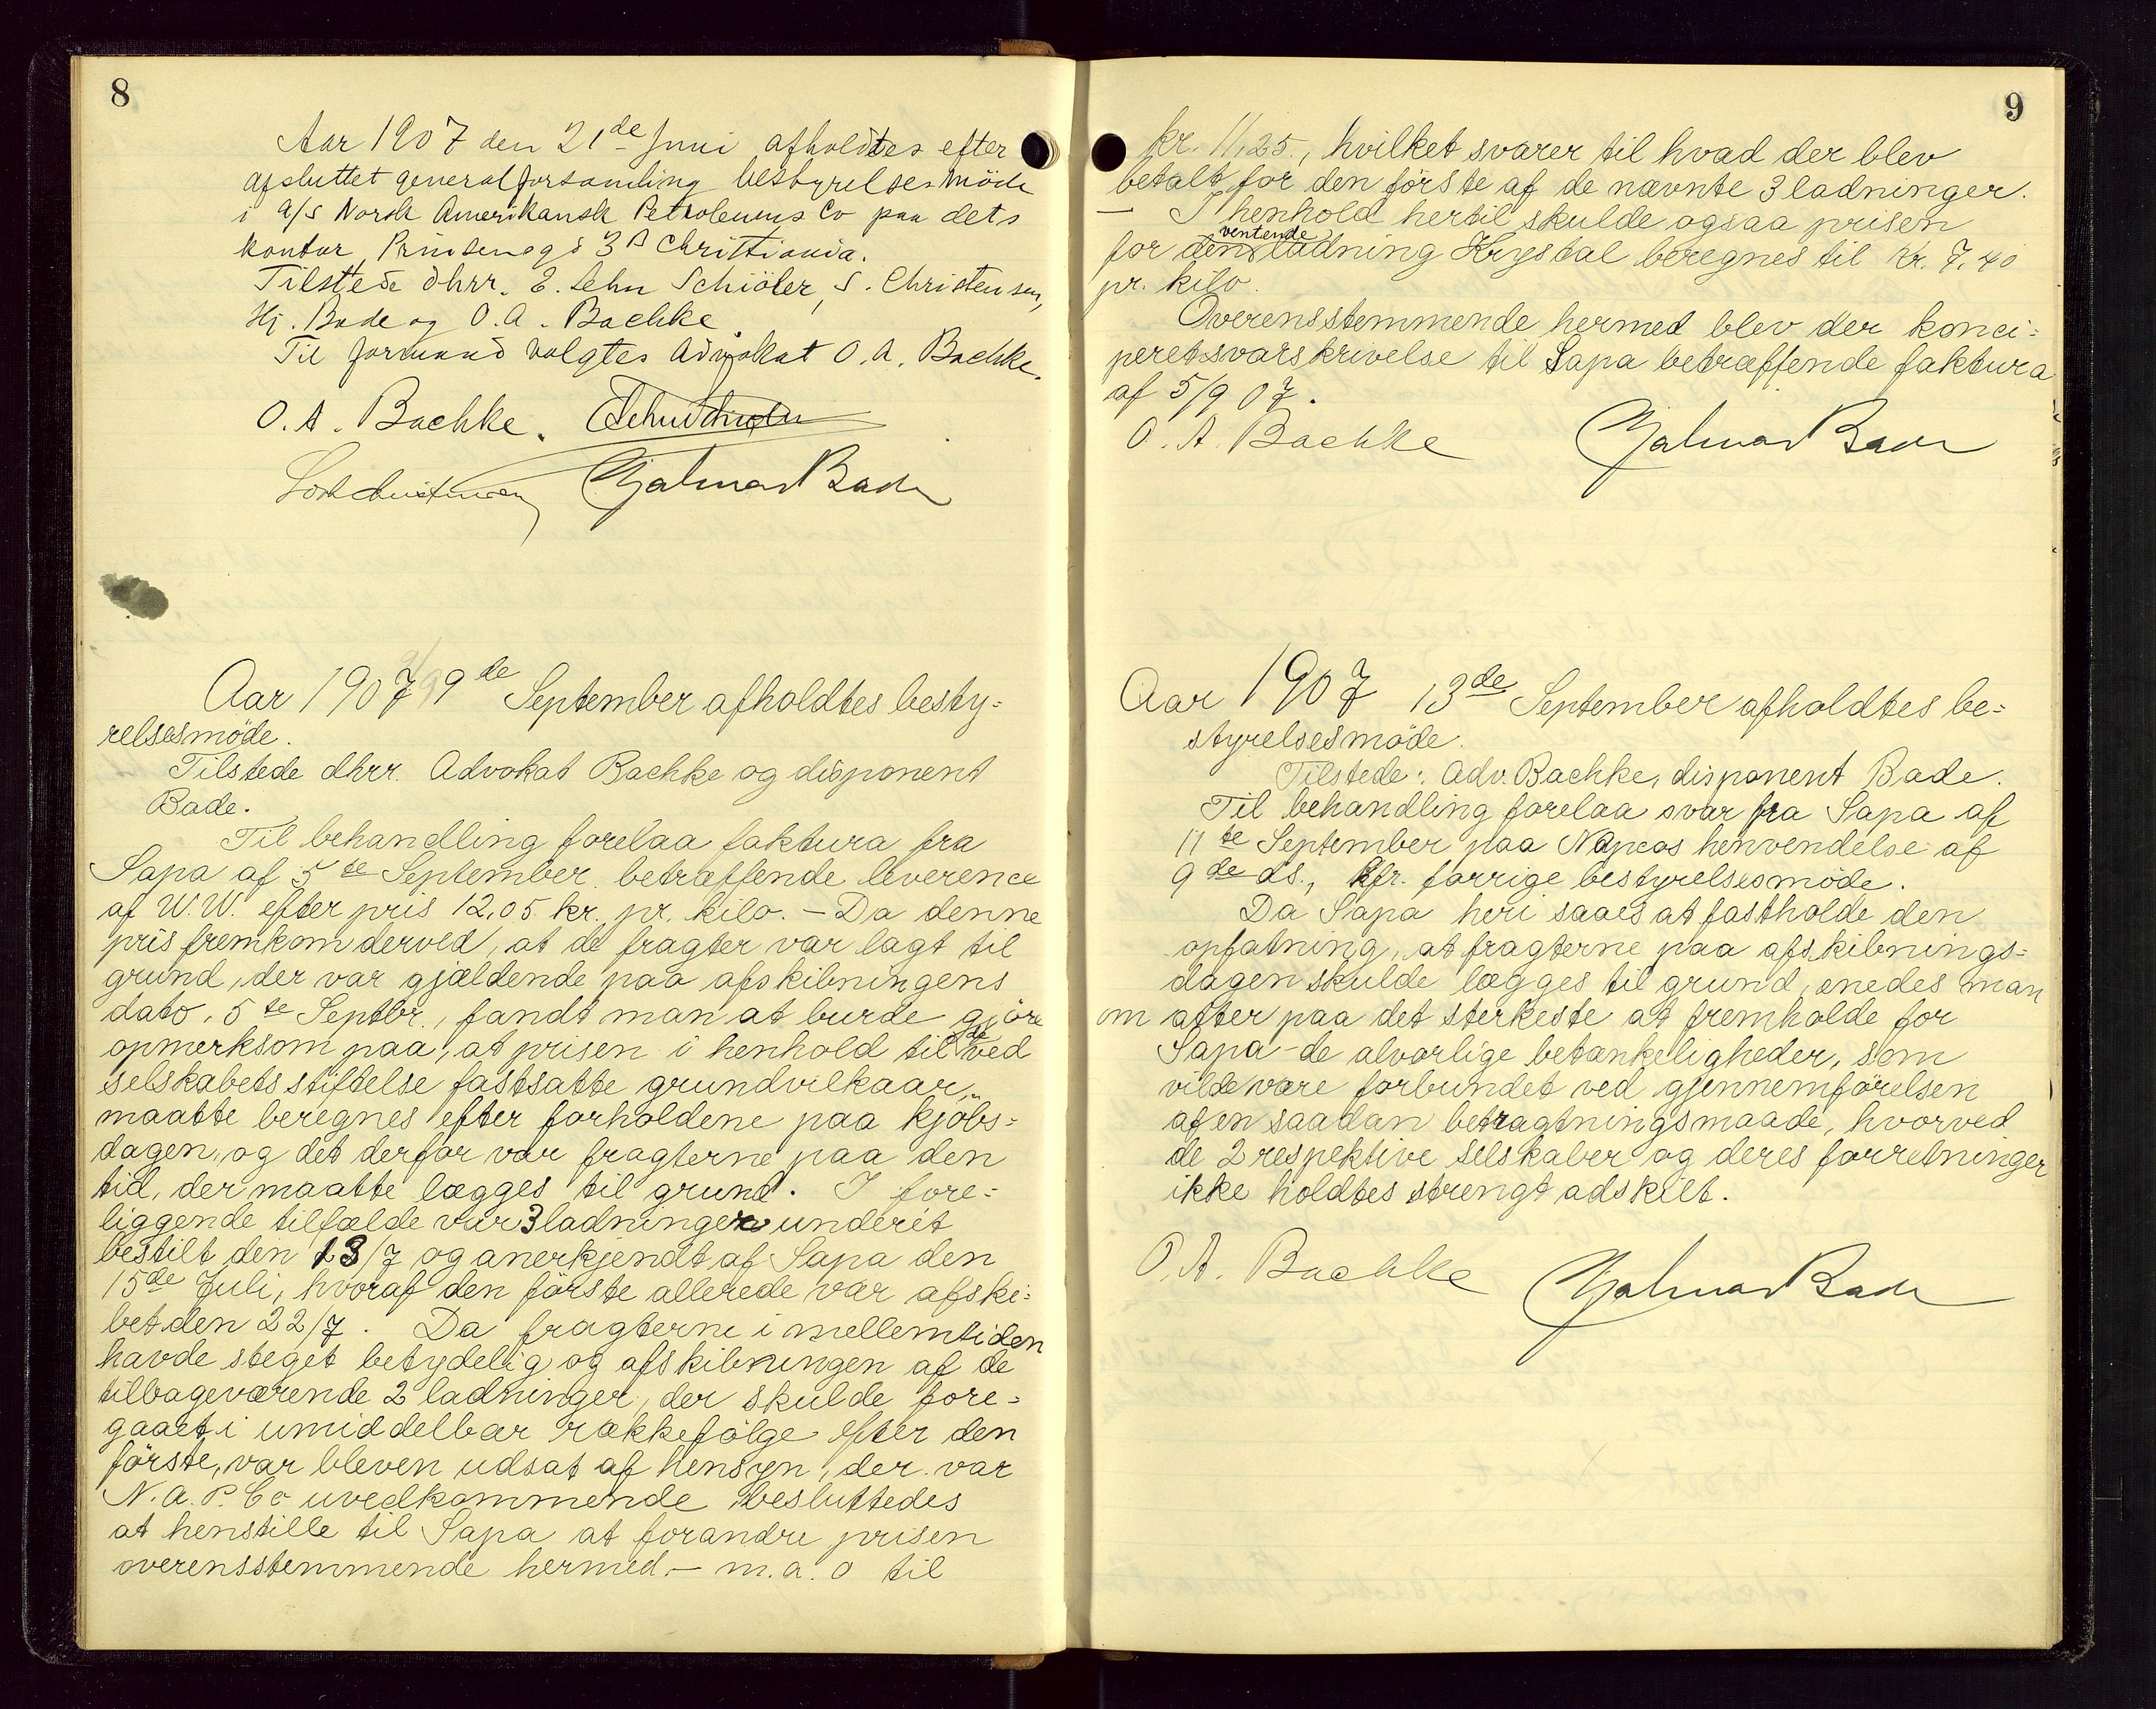 8
Aar 1907 den 21de Juni afholdtes efter
afsluttet generalforsamling bestyrelsesmöde
i A/S Norsk Amerikansk Petroleums Co paa dets
kontor Prinsensgd 3B Christiania.
Tilstede dhrr. E. Lehn Schiöler, S. Christensen,
Hj. Bade og O.A. Bachke.
Til formand valgtes Advokat O.A. Bachke.
O. A. Bachke. E Lehn Schiøler
Hjalmar Bade
Aar 1907 9de September afholdtes besty-
relsesmöde.
Tilstede dhrr. Advokat Bachke og disponent
Bade.
Til behandling forelaa faktura fra
Sapa af 5te September betræffende leverence
af W.W. efter pris 12,05 kr. pr. kilo. – Da denne
pris fremkom derved, at de fragter var lagt til
grund, der var gjældende paa afskibningens
dato, 5te Septbr., fandt man at burde gjöre
opmerksom paa, at prisen i henhold til de ved
selskabets stiftelse fastsatte grundvilkaar,
maatte beregnes efter forholdene paa kjöbs-
dagen, og det derfor var fragterne paa den
tid, der maatte lægges til grund. I fore-
liggende tilfælde var 3 ladninger underét
bestilt den 13/7 og anerkjendt af Sapa den
15de Juli, hvoraf den förste allerede var afski-
bet den 22/7. Da fragterne i mellemtiden
havde steget betydelig og afskibningen af de
tilbageværende 2 ladninger, der skulde fore-
gaaet i umiddelbar rækkefölge efter den
förste, var bleven udsat af hensyn, der var
N.A.P. Co uvedkommende besluttedes
at henstille til Sapa at forandre prisen
overensstemmende hermed – m.a.o til
9
kr. 11,25., hvilket svarer til hvad der blev
betalt for den förste af de nævnte 3 ladninger.
– I henhold hertil skulde ogsaa prisen
for den ventende ladning Krystal beregnes til kr. 7.40
pr. kilo.
Overensstemmende hermed blev der konci-
peret svarskrivelse til Sapa betræffende faktura
af 5/9 07.
O. A. Bachke Hjalmar Bade
Aar 1907 13de September afholdtes be-
styrelsesmöde.
Tilstede: Adv. Bachke, disponent Bade.
Til behandling forelaa svar fra Sapa af
11te September paa Napcos henvendelse af
9de ds., kfr. forrige bestyrelsesmöde.
Da Sapa heri saaes at fastholde den
opfatning, at fragterne paa afskibnings-
dagen skulde lægges til grund, enedes man
om atter paa det sterkeste at fremholde for
Sapa de alvorlige betænkeligheder, som
vilde være forbundet ved gjennemförelsen
af en saadan betragtningsmaade, hvorved
de 2 respektive selskaber og deres forretninger
ikke holdtes strengt adskilt.
O. A. Bachke Hjalmar Bade